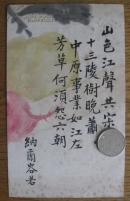 山色江聲共寂寥
十三陵樹晚蕭蕭
中原事業如江左
芳草何須怨六朝
納爾容若